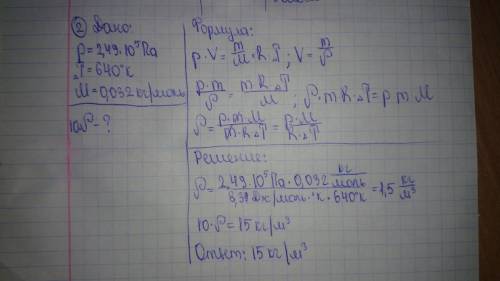 ② Дано:
p = 2,49·10⁵ Па
△T = 640°к
M = 0,032 кг/моль
10ρ - ?
Формула:
p·V = m/M · R · △T ; V = m/ρ
p·m/ρ = m·R·△T/M ; ρ·m·R·△T = p·m·M
ρ = p·m·M/m·R·△T = p·M/R·△T
Решение:
ρ = 2,49·10⁵Па · 0,032 кг/моль / 8,31 Дж/моль·°к · 640°к = 1,5 кг/м³
10·ρ = 15 кг/м³
Ответ: 15 кг/м³